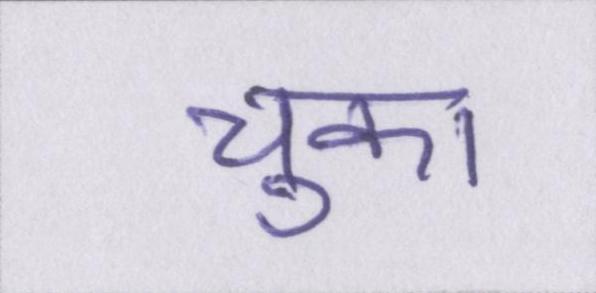 चुका